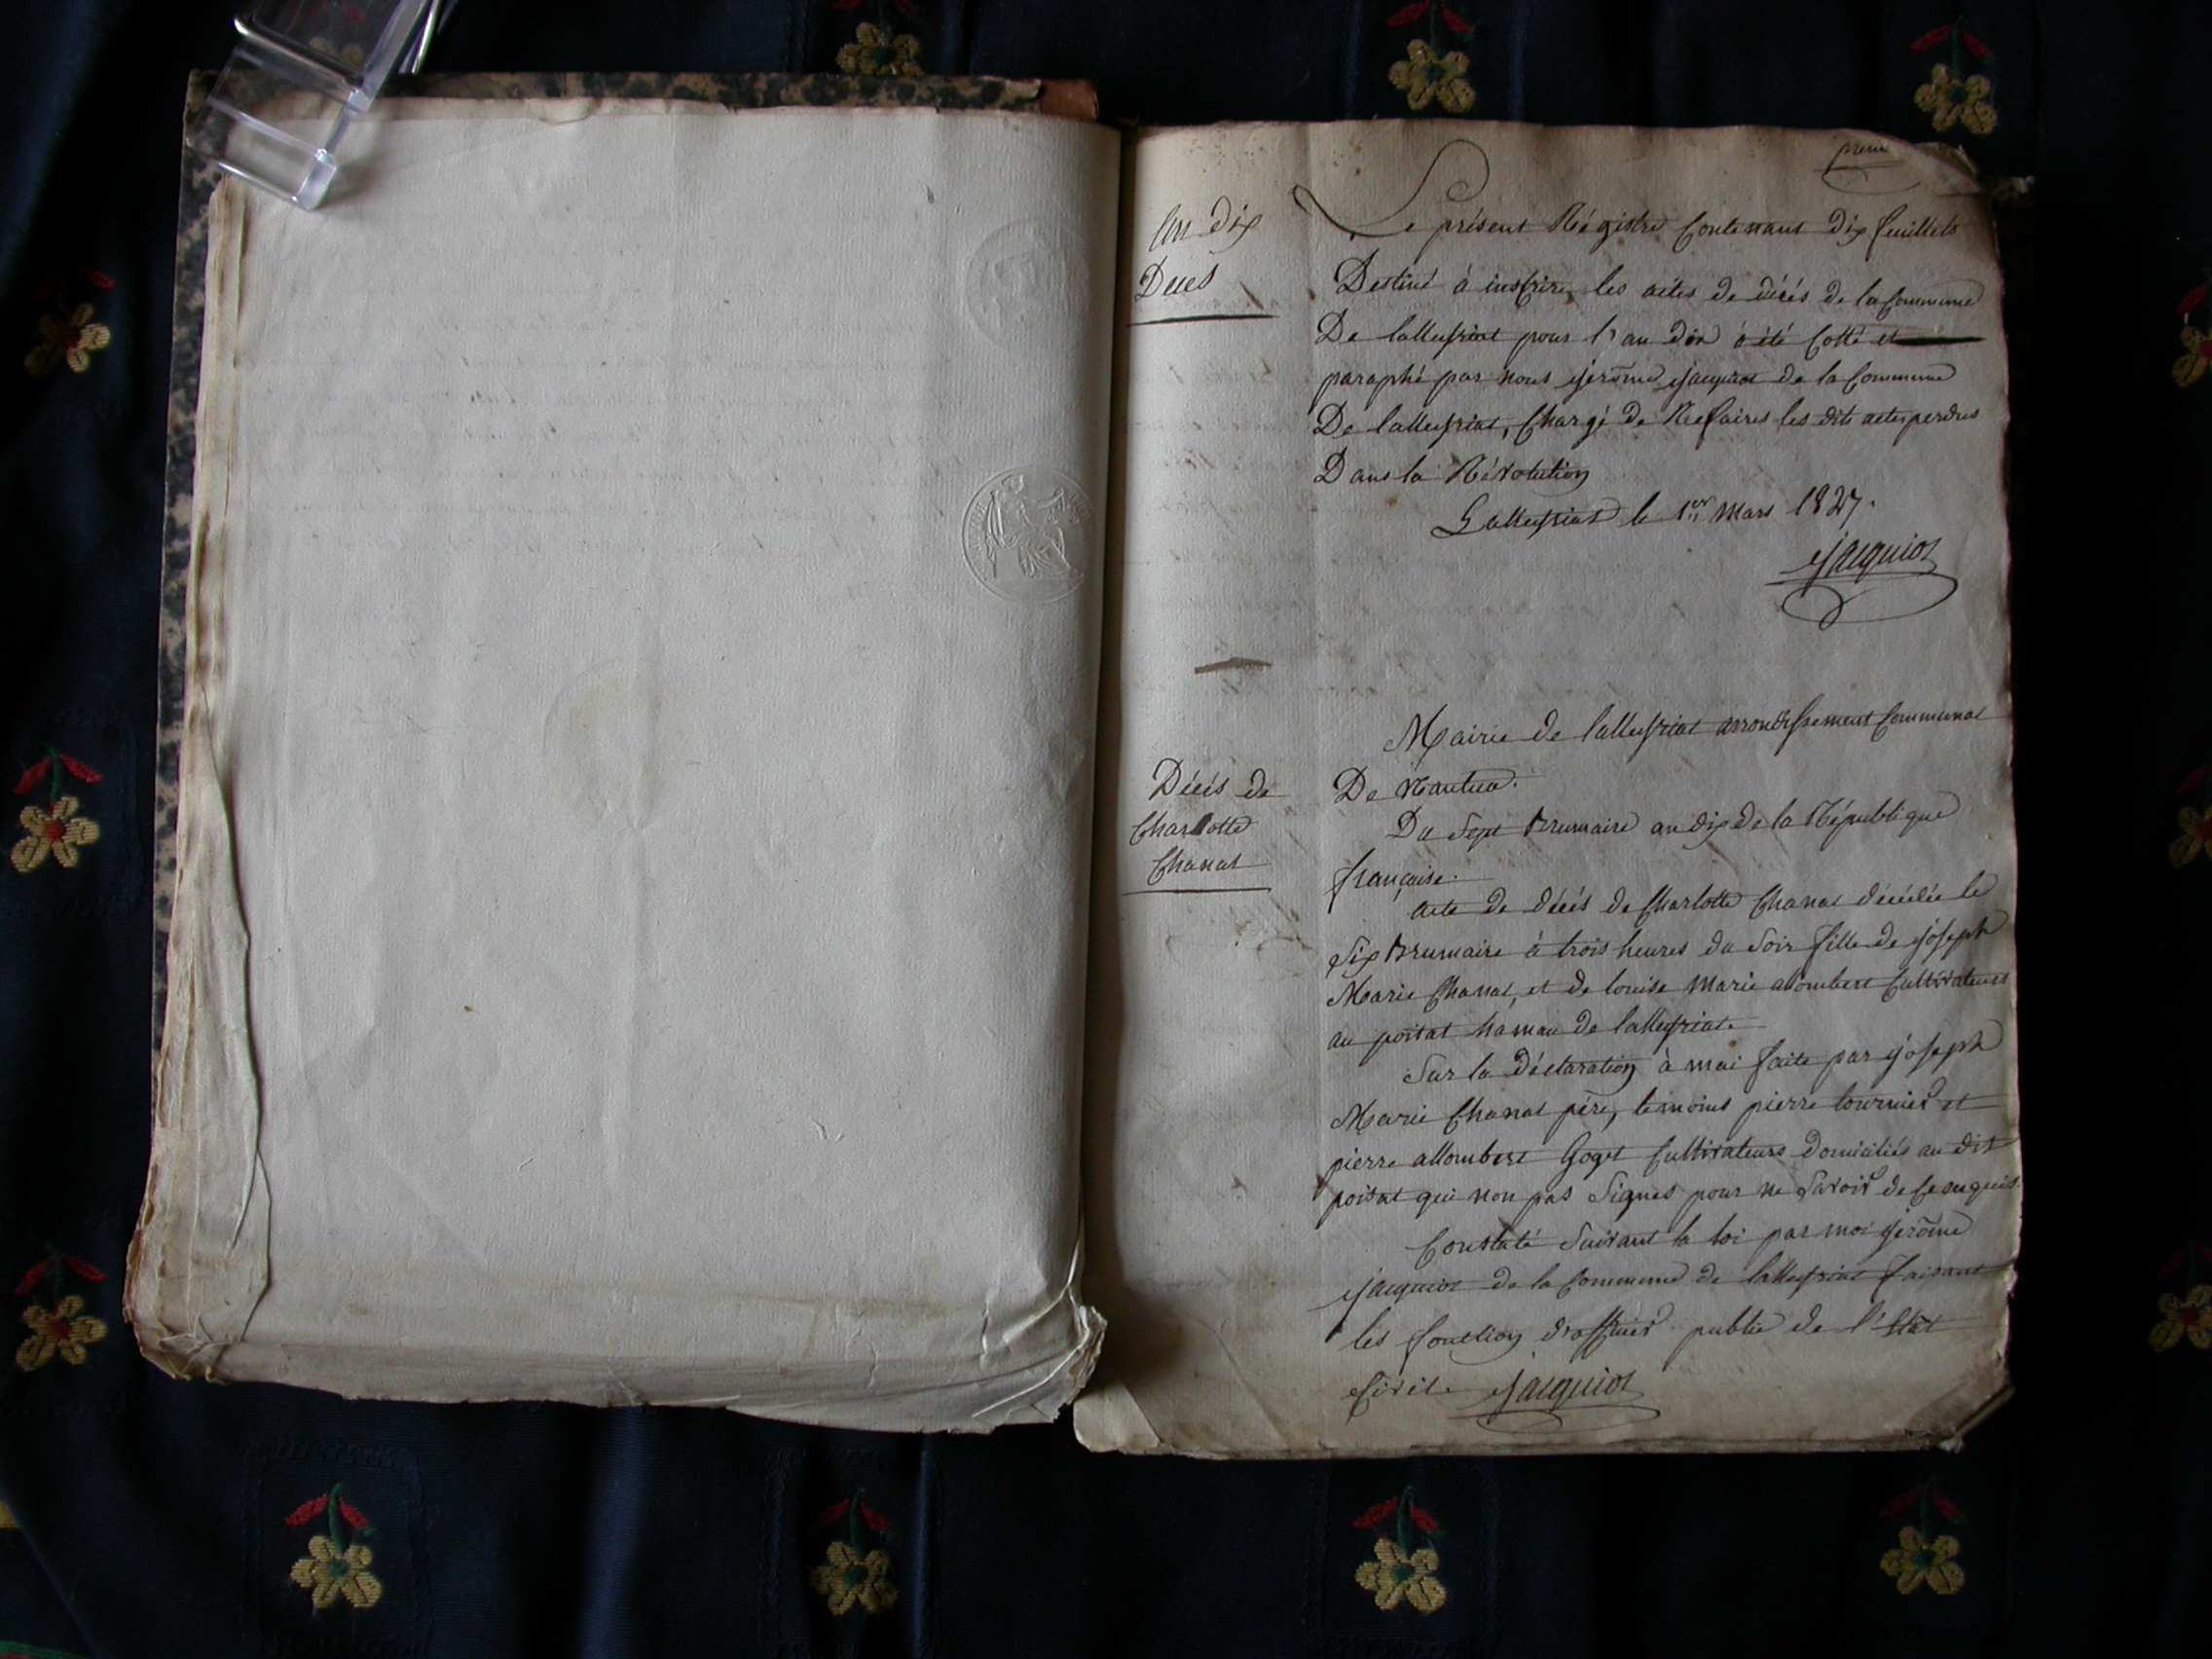 premi
An dix
Décès
Le présent Régistre Contenant dix feuillets
Destiné à inscrire les actes de décés de la Commune
De lalleyriat pour l'an dix a été Cotté et
paraphé par nous jerôme jacquiot de la Commune
De lalleyriat, Chargé de Refaires les dits actes perdus
Dans la Révolution
Lalleyriat le 1er Mars 1827.
Jacquiot
Mairie de lalleyriat arrondissement Communal
De Nantua.
Décés de
Charlotte
Chanal
Du Sept Brumaire an dix de la République
française.
acte de décés de Charlotte Chanal décédée le
Six Brumaire à trois heures du Soir fille de joseph
Marie Chanal, et de louise Marie allombert Cultivateurs
au poizat hamau de lalleyriat.
Sur la Déclaration à moi faite par joseph
Marie Chanal pére, temoins pierre tournier et
pierre allombert Goget Cultivateurs domiciliés au dit
poizat qui non pas Signes pour ne Savoir de Ce enquis
Constaté Suivant la loi par moi jerôme
jacquiot de la Commune de lalleyriat faisant
les fonction d'officier public de l'État
Civil. Jacquiot